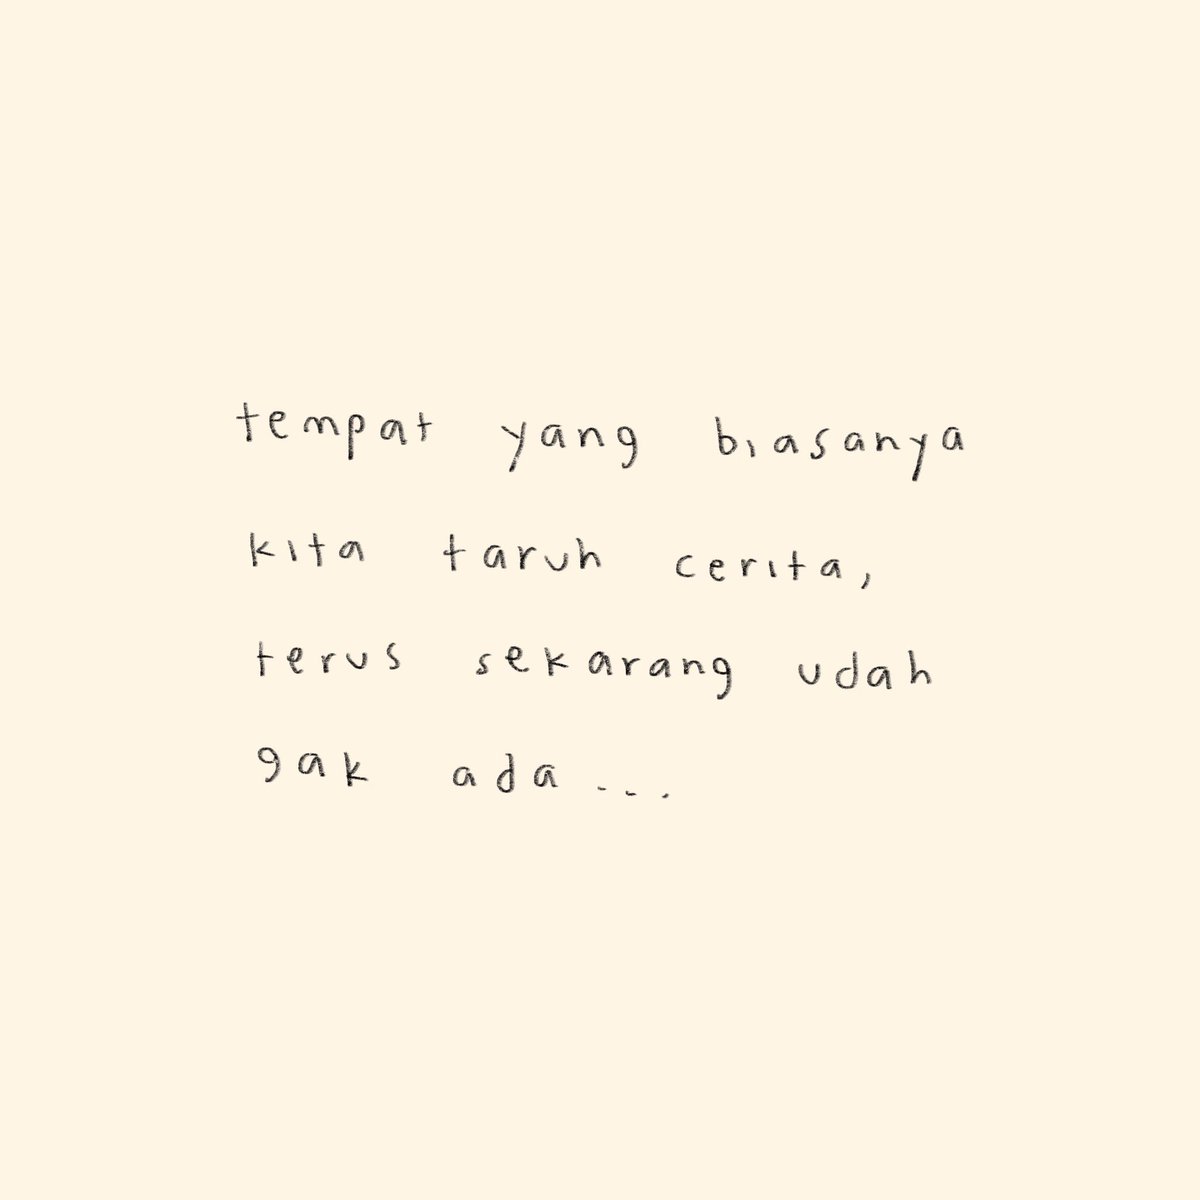 tempat yang biasanya
kita taruh cerita,
terus sekarang udah
gak ada...